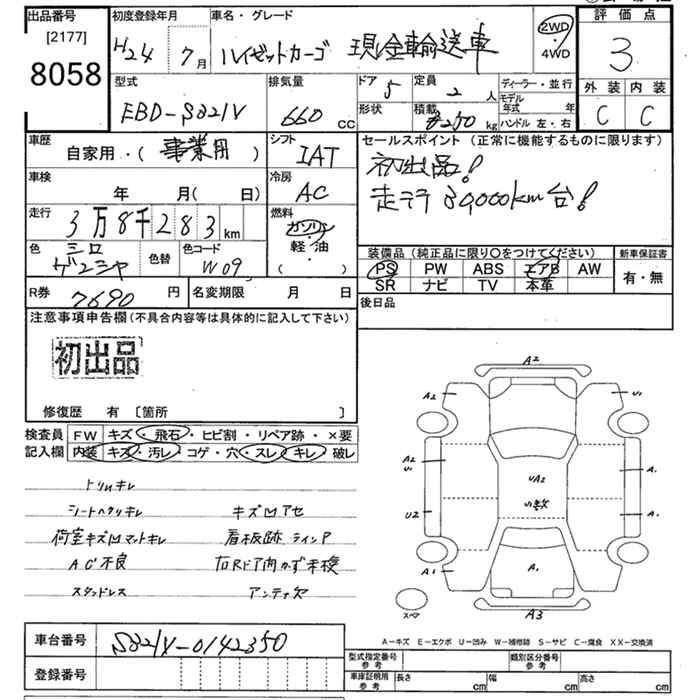 出品番号 初度登録年月 車名・グレード 2WD 評価点
[2177] H24 7月 ハイゼットカーゴ 現金輸送車 4WD 3
8058
型式 排気量 ドア 5 定員 2人 ディーラー・並行 外装 内装
EBD-S321V 660cc 形状 積載 250kg モデル年式 年 C C
ハンドル 左・右
車歴 シフト セールスポイント (正常に機能するものに限ります)
自家用・( 事業用 ) IAT 初出品!
車検 冷房 走行 39,000km台!
年 月( 日) AC
走行 3万8千283km 燃料
ガソリン
色 色替 色コード 軽・油 装備品 (純正品に限り〇をつけてください) 新車保証書
W09 ( ) PS PW ABS エアB AW 有・無
SR ナビ TV 本革
R券 7690円 名変期限 月 日 後日品
注意事項申告欄(不具合内容等は具体的に記入して下さい)
初出品
修復歴 有 〔箇所 〕
検査員 FW キズ・飛石・ヒビ割・リペア跡・×要
記入欄 内装 キズ・汚レ・コゲ・穴・スレ・キレ・破レ
トリムキレ
シートヘタリキレ キズ凹アセ
荷室キズ凹マットキレ 看板跡 ラインP
AC不良 右Rドア開かず未検
スタッドレス アンテナ欠
A2
A2 U1
A2 A1
U1 UA2
U2 U1数 A1
A1 A1 A1
スペア A3
A－キズ E－エクボ U－凹み W－補修跡 S－サビ C－腐食 XX－交換済
車台番号 S321V-0142350
登録番号
型式指定番号 参考 類別区分番号 参考
車庫証明用 参考 長さ cm 幅 cm 高さ cm